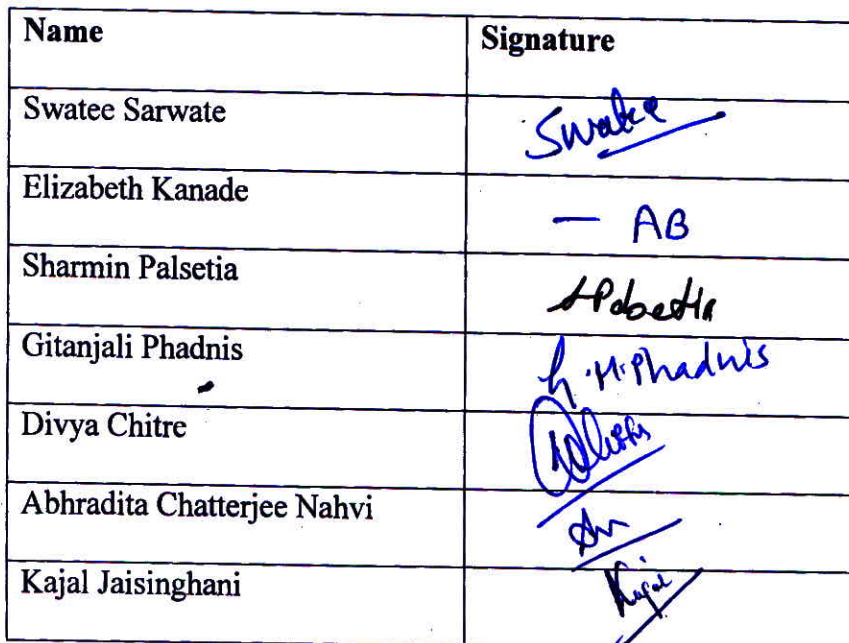 Name Signature
Swatee Sarwate Swatee
Elizabeth Kanade — AB
Sharmin Palsetia
Gitanjali Phadnis G.M.Phadnis
Divya Chitre
Abhradita Chatterjee Nahvi
Kajal Jaisinghani Kajal